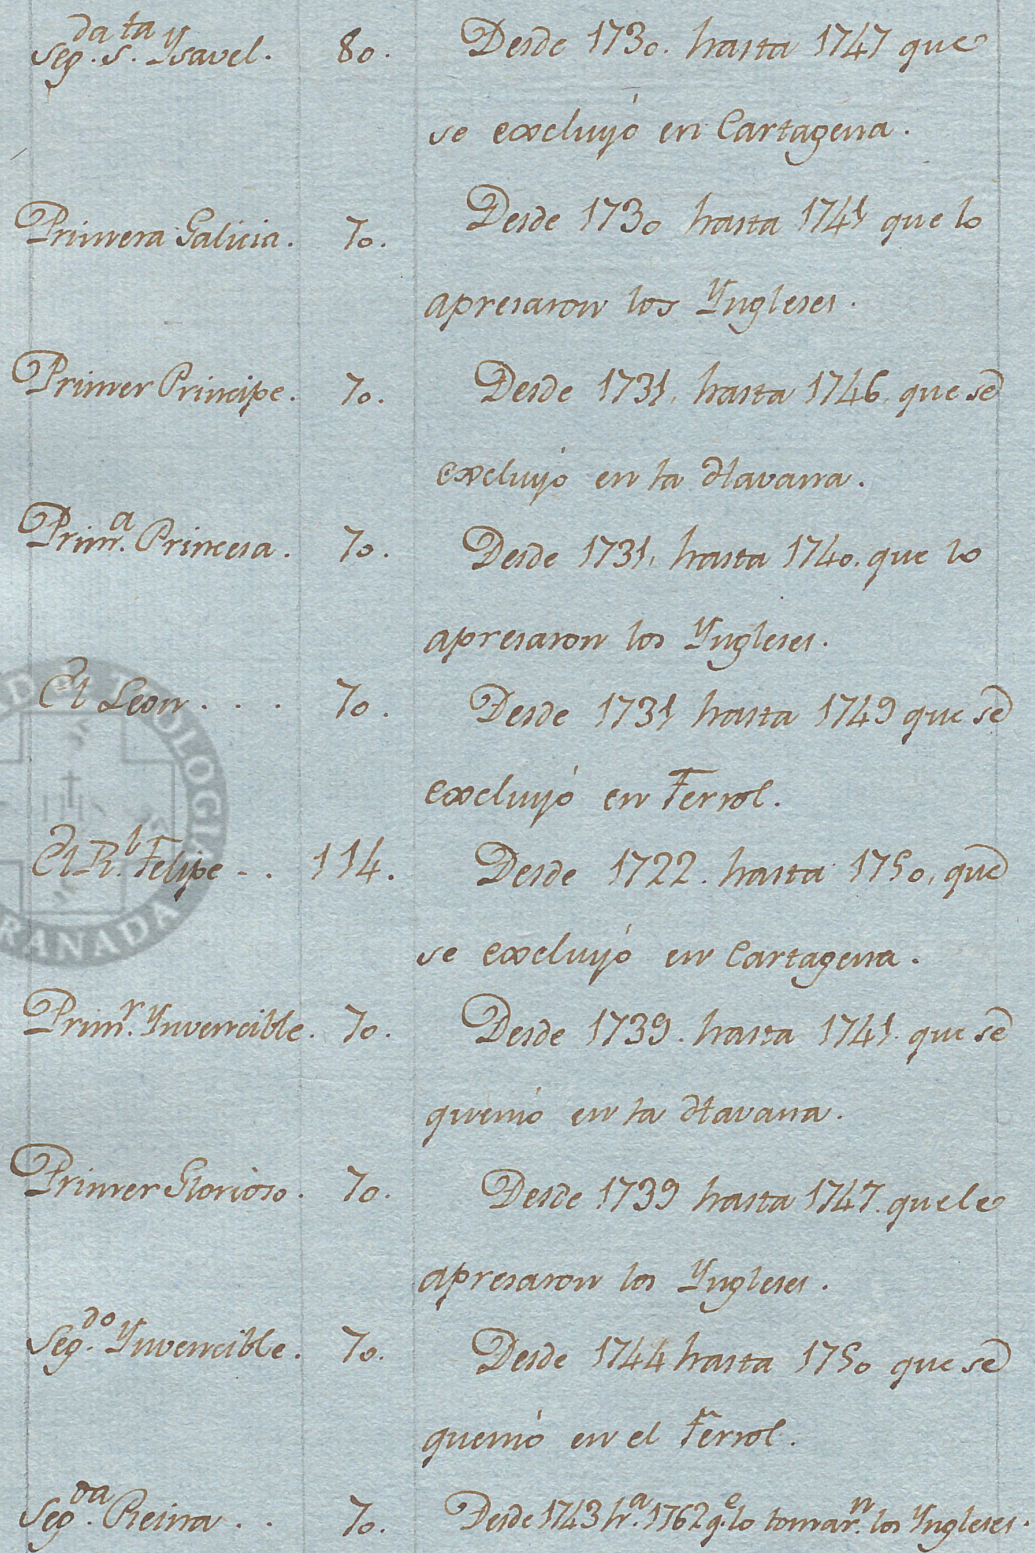 Seg.da S.ta Ysavel. 80. Desde 1730. hasta 1747 que
se excluyó en Cartagena.
Primera Galicia. 70. Desde 1730 hasta 1741 que lo
apresaron los Yngleses.
Primer Principe. 70. Desde 1731, hasta 1746, que se
excluyó en la Havana.
Prim.a Princesa. 70. Desde 1731, hasta 1740. que lo
apresaron los Yngleses.
El Leon . . . 70. Desde 1731 hasta 1749 que se
excluyó en Ferrol.
El R.l Felipe - . 114. Desde 1722. hasta 1750, que
se excluyó en Cartagena.
Prim.r Ynvencible. 70. Desde 1739. hasta 1741. que se
quemó en la Havana.
Primer Glorioso. 70. Desde 1739 hasta 1747. que le
apresaron los Yngleses.
Seg.do Ynvencible. 70. Desde 1744 hasta 1750 que se
quemó en el Ferrol.
Seg.da Reina . . 70. Desde 1743 h.a 1762 q.e lo tomar.n los Yngleses.
D DE TEOLOGIA
RANADA